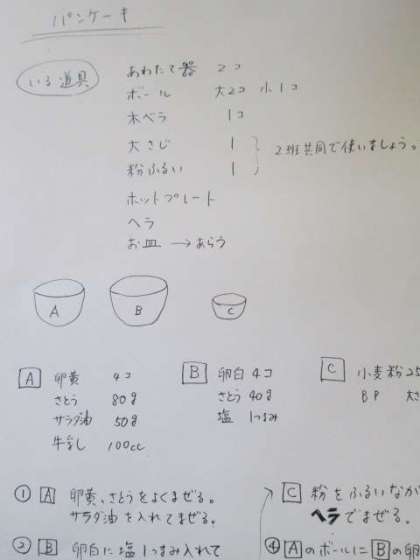 パンケーキ
いる道具
あわたて器 2コ
ボール 大2コ 小1コ
木ベラ 1コ
大さじ 1
粉ふるい 1
2班共同で使いましょう。
ホットプレート
ヘラ
お皿 →あらう
A B C
A 卵黄 4コ
さとう 80g
サラダ油 50g
牛乳 100cc
B 卵白 4コ
さとう 40g
塩 1つまみ
C 小麦粉 25
BP 大さ
① A 卵黄、さとうをよくまぜる。
サラダ油を入れてまぜる。
② B 卵白に塩1つまみ入れて
C 粉をふるいなが
ヘラでまぜる。
④ AのボールにBの卵